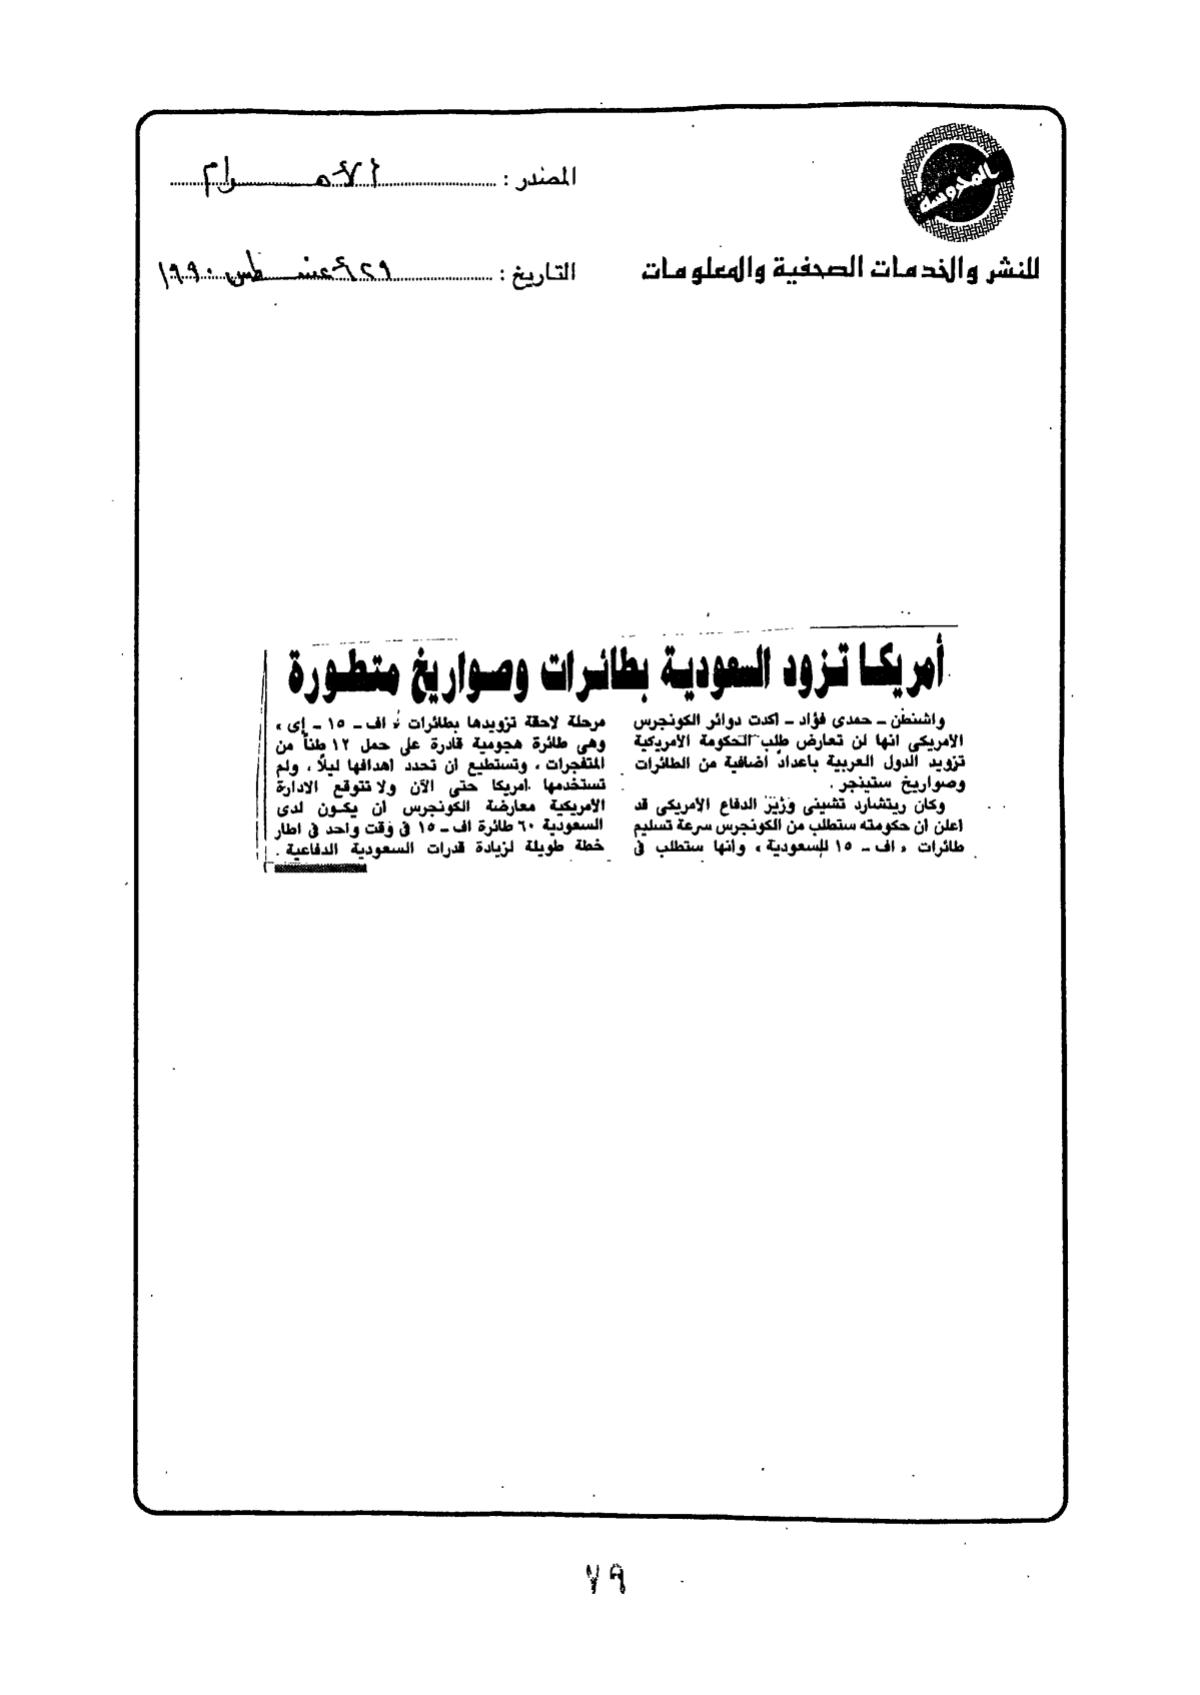 المحروسة
للنشر والخدمات الصحفية والمعلومات
المصدر : الأهـــرام
التاريخ : ٢٩ أغسطس ١٩٩٠
أمريكا تزود السعودية بطائرات وصواريخ متطورة
واشنطن ـ حمدى فؤاد ـ اكدت دوائر الكونجرس
الامريكى انها لن تعارض طلب الحكومة الامريكية
تزويد الدول العربية باعداد اضافية من الطائرات
وصواريخ ستينجر .
وكان ريتشارد تشينى وزير الدفاع الأمريكى قد
اعلن ان حكومته ستطلب من الكونجرس سرعة تسليم
طائرات « اف ـ ١٥ للسعودية » وانها ستطلب فى
مرحلة لاحقة تزويدها بطائرات « اف ـ ١٥ ـ إى »
وهى طائرة هجومية قادرة على حمل ١٢ طناً من
المتفجرات ، وتستطيع ان تحدد اهدافها ليلاً ، ولم
تستخدمها امريكا حتى الآن ولا تتوقع الادارة
الامريكية معارضة الكونجرس ان يكون لدى
السعودية ٦٠ طائرة اف ـ ١٥ فى وقت واحد فى اطار
خطة طويلة لزيادة قدرات السعودية الدفاعية .
٧٩